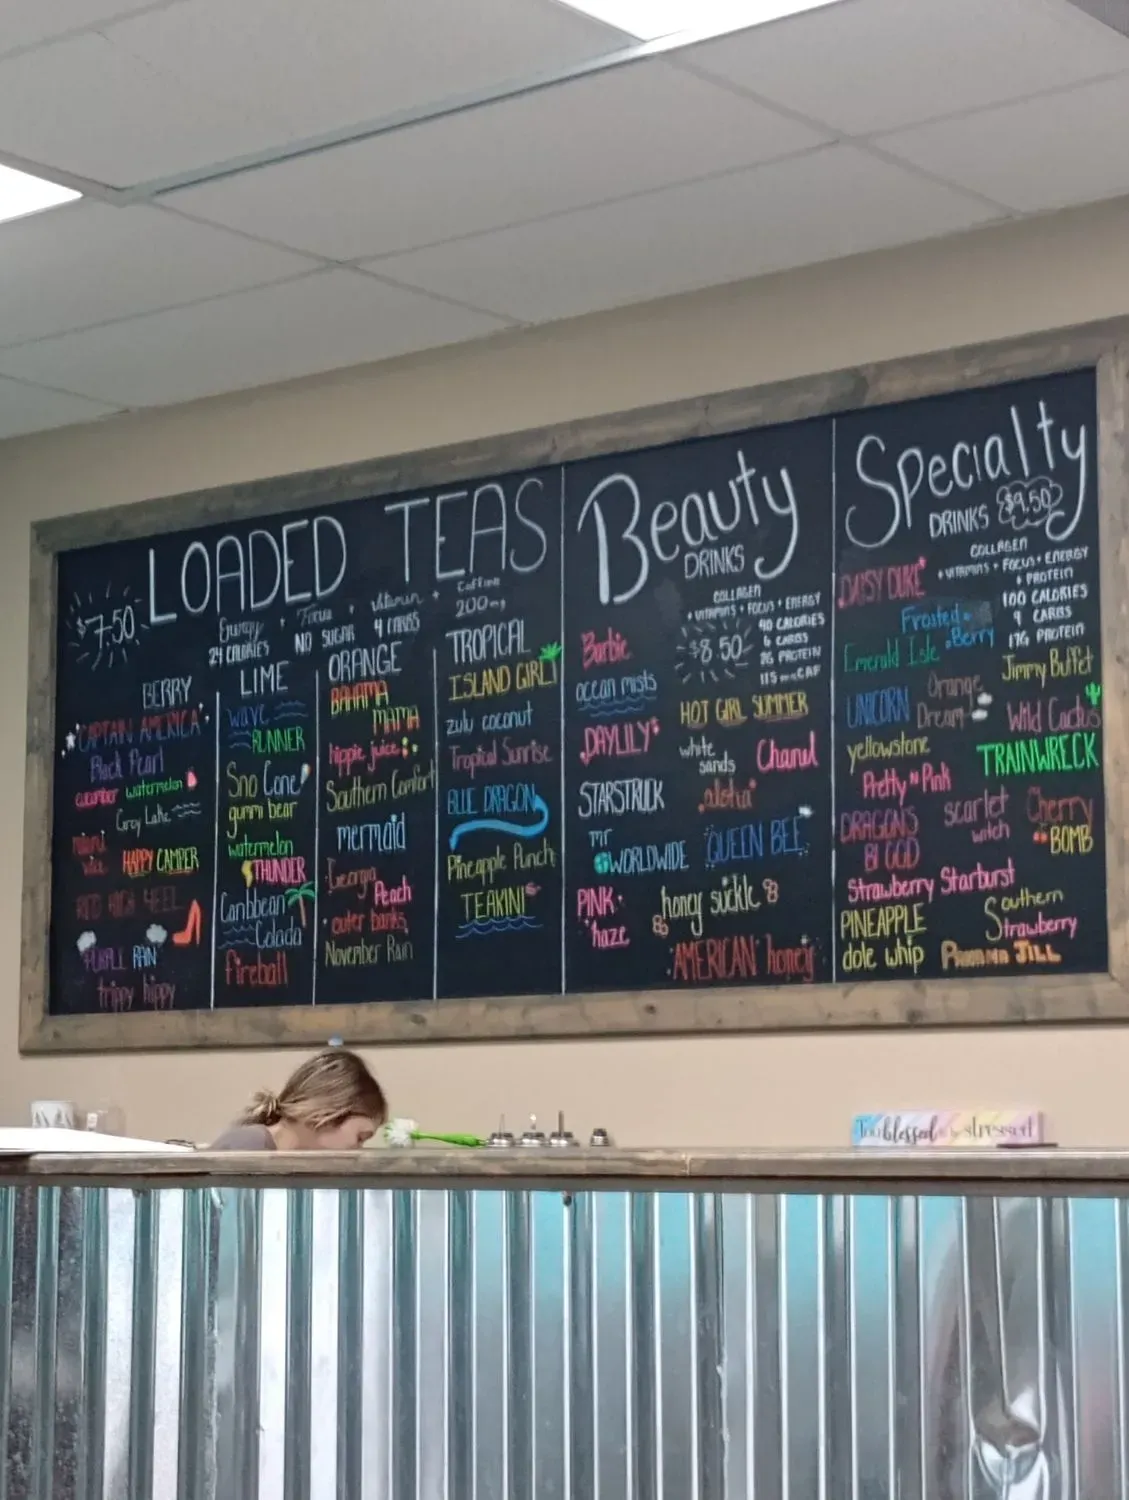 LOADED TEAS
$7.50
Energy + Focus + Vitamin + Caffine
24 CALORIES NO SUGAR 4 CARBS 200mg
BERRY
CAPTAIN AMERICA
Black Pearl
cucumber watermelon
Grey Lake
miami
vice
HAPPY CAMPER
RED HIGH HEEL
PURPLE RAIN
trippy hippy
LIME
wave
RUNNER
Sno Cone
gummi bear
watermelon
THUNDER
Caribbean
Colada
fireball
ORANGE
BAHAMA
MAMA
hippie juice
Southern Comfort
mermaid
Georgia
Peach
outer banks
November Rain
TROPICAL
ISLAND GIRL
zulu coconut
Tropical Sunrise
BLUE DRAGON
Pineapple Punch
TEAKINI
Beauty
DRINKS
COLLAGEN
+ VITAMINS + FOCUS + ENERGY
$8.50
90 CALORIES
6 CARBS
PROTEIN
115 mg CAF
Barbie
ocean mists
HOT GIRL SUMMER
DAYLILY
white
sands
Chanel
STARSTRUCK
aloha
mr
WORLDWIDE
QUEEN BEE
PINK
haze
honey suckle
AMERICAN honey
Specialty
DRINKS $9.50
COLLAGEN
+ VITAMINS + FOCUS + ENERGY
+ PROTEIN
100 CALORIES
9 CARBS
17G PROTEIN
DAISY DUKE
Frosted
Berry
Emerald Isle
Jimmy Buffet
UNICORN
Orange
Dream
Wild Cactus
yellowstone
TRAINWRECK
Pretty N Pink
DRAGONS
BLOOD
scarlet
witch
Cherry
BOMB
Strawberry Starburst
PINEAPPLE
dole whip
Southern
Strawberry
JILL
Too blessed to be stressed